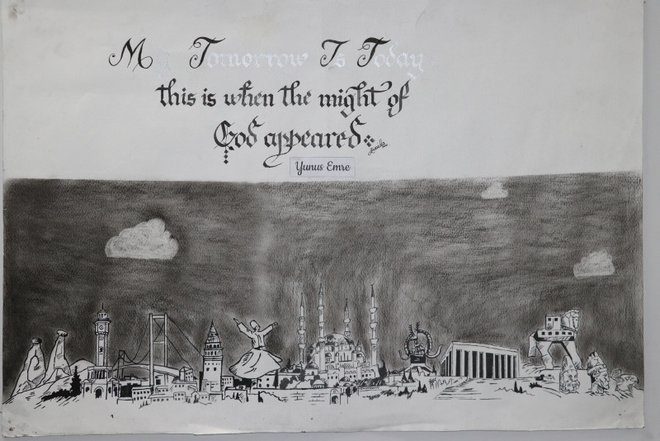 My Tomorrow Is Today
this is when the might of
God appeared
Yunus Emre